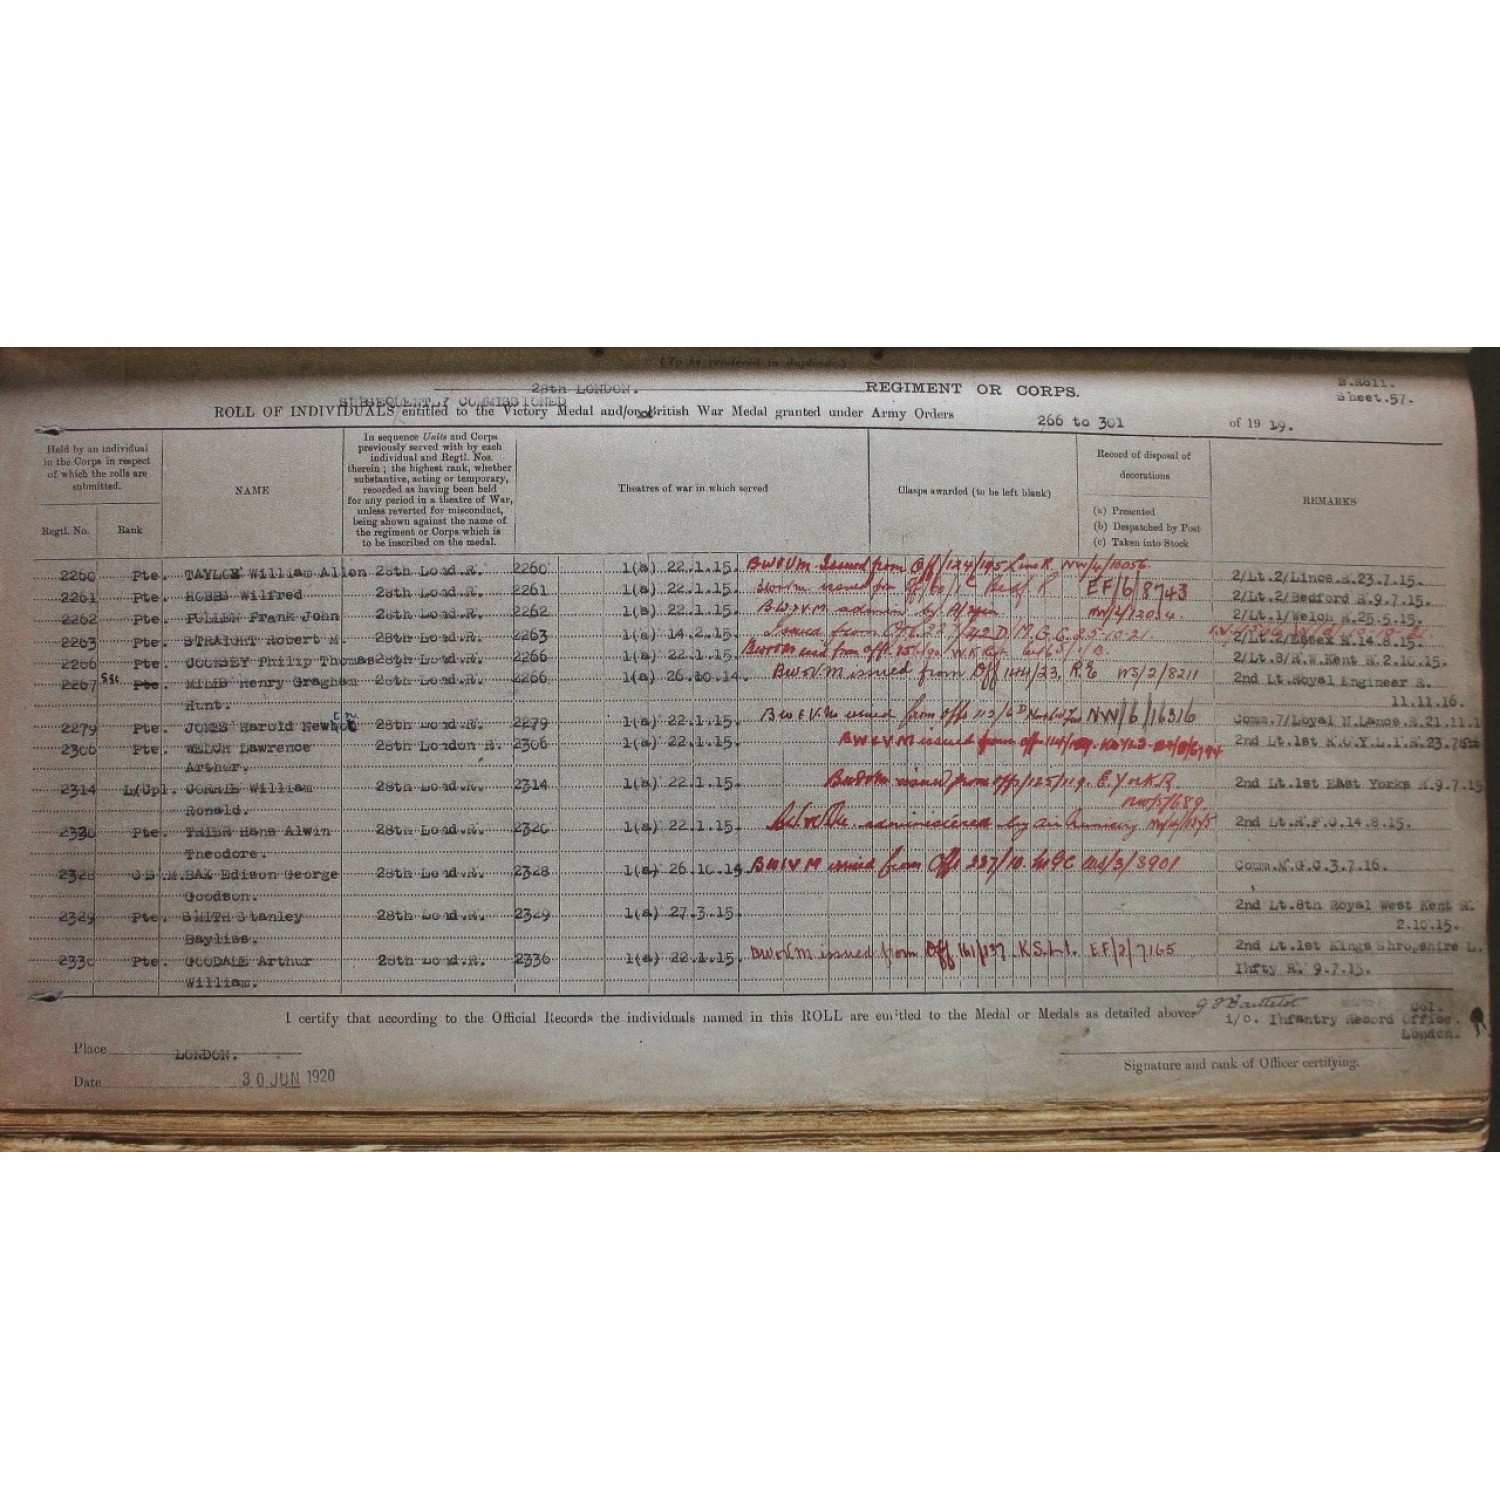 (To be rendered in duplicate.)
28th LONDON. REGIMENT OR CORPS. B.Roll.
SUBSEQUENTLY COMMISSIONED Sheet.57.
ROLL OF INDIVIDUALS entitled to the Victory Medal and/or British War Medal granted under Army Orders 266 to 301 of 19 19.
Held by an individual in the Corps in respect of which the rolls are submitted.
Regtl. No. Rank
NAME
In sequence Units and Corps previously served with by each individual and Regtl. Nos. therein ; the highest rank, whether substantive, acting or temporary, recorded as having been held for any period in a theatre of War, unless reverted for misconduct, being shown against the name of the regiment or Corps which is to be inscribed on the medal.
Theatres of war in which served
Clasps awarded (to be left blank)
Record of disposal of decorations
(a) Presented
(b) Despatched by Post
(c) Taken into Stock
REMARKS
2260 Pte. TAYLOR William Allen 28th Lond.R. 2260 1(a) 22.1.15. BW&VM Issued from Off/124/195 Linc R. NW/4/10056 2/Lt.2/Lincs.R.23.7.15.
2261 Pte. HOBBS Wilfred 28th Lond.R. 2261 1(a) 22.1.15. issued EF/6/8743 2/Lt.2/Bedford R.9.7.15.
2262 Pte. PULLEN Frank John 28th Lond.R. 2262 1(a) 22.1.15. BW&VM by 2/Lt.1/Welch R.25.5.15.
2263 Pte. STRAIGHT Robert M. 28th Lond.R. 2263 1(a) 14.2.15. Issued from M.G.C. 25-10-21. 2/Lt.2/Essex R.14.8.15.
2266 Pte. Philip Thomas 28th Lond.R. 2266 1(a) 22.1.15. 2/Lt.8/R.W.Kent R.2.10.15.
2267 Sgt Pte. MIMS Henry Gragham 28th Lond.R. 2266 1(a) 26.10.14. BW&VM issued from Off 144/23. R.E WS/2/8211 2nd Lt.Royal Engineer R.
Hunt. 11.11.16.
2279 Pte. JONES Harold 28th Lond.R. 2279 1(a) 22.1.15. BW&VM issued from offs 113/6D NW/6/16316 Comm.7/Loyal N.Lancs.R.21.11.1
2306 Pte. WELCH Lawrence 28th London R. 2306 1(a) 22.1.15. BW&VM issued from off 2nd Lt.1st K.O.Y.L.I.R.23.
Arthur.
2314 L/Cpl. William 28th Lond.R. 2314 1(a) 22.1.15. BW&VM issued from offs/125/119. E. Yorks R. 2nd Lt.1st East Yorks R.9.7.15
Ronald. NW/5/689
Pte. TRIER Hans Alwin 28th Lond.R. 1(a) 22.1.15. administered by Air Ministry 2nd Lt.R.F.C.14.8.15.
Theodore.
2328 BAX Edison George 28th Lond.R. 2328 1(a) 26.10.14 BW&VM issued from Off 237/10. MGC WS/3/3901 Comm.M.G.C.3.7.16.
Goodson.
2329 Pte. SMITH Stanley 28th Lond.R. 2329 1(a) 27.3.15. 2nd Lt.8th Royal West Kent R.
Bayliss. 2.10.15.
Pte. GOODALE Arthur 28th Lond.R. 2336 1(a) 22.1.15. BW&VM issued from Off 161/137. K.S.L.I. EF/2/7165 2nd Lt.1st Kings Shropshire L.
William. Infty R. 9.7.15.
I certify that according to the Official Records the individuals named in this ROLL are entitled to the Medal or Medals as detailed above
Col.
i/c. Infantry Record Office.
London.
Place LONDON.
Signature and rank of Officer certifying.
Date 30 JUN 1920